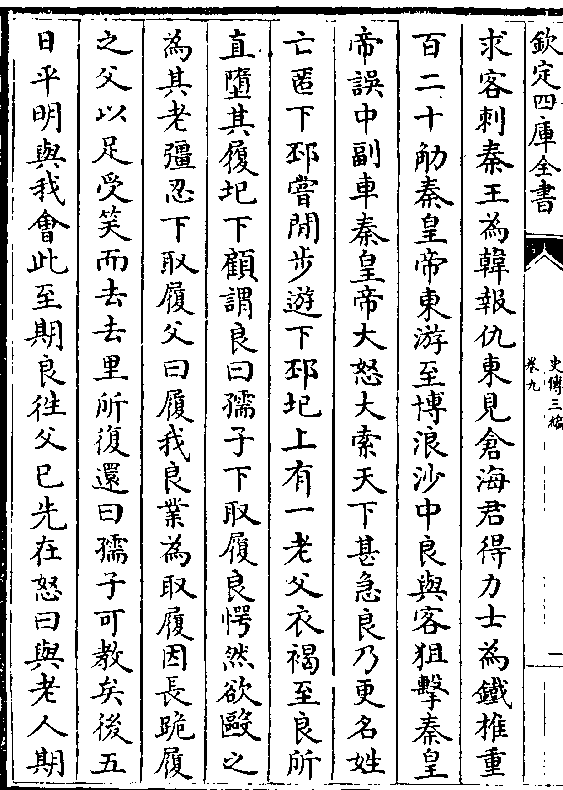 欽定四庫全書
史傳三編
卷九
一
求客刺秦王為韓報仇東見倉海君得力士為鐵椎重
百二十觔秦皇帝東游至博浪沙中良與客狙擊秦皇
帝誤中副車秦皇帝大怒大索天下甚急良乃更名姓
亡匿下邳嘗閒步遊下邳圯上有一老父衣褐至良所
直墮其履圯下顧謂良曰孺子下取履良愕然欲毆之
為其老彊忍下取履父曰履我良業為取履因長跪履
之父以足受笑而去去里所復還曰孺子可教矣後五
日平明與我會此至期良往父已先在怒曰與老人期